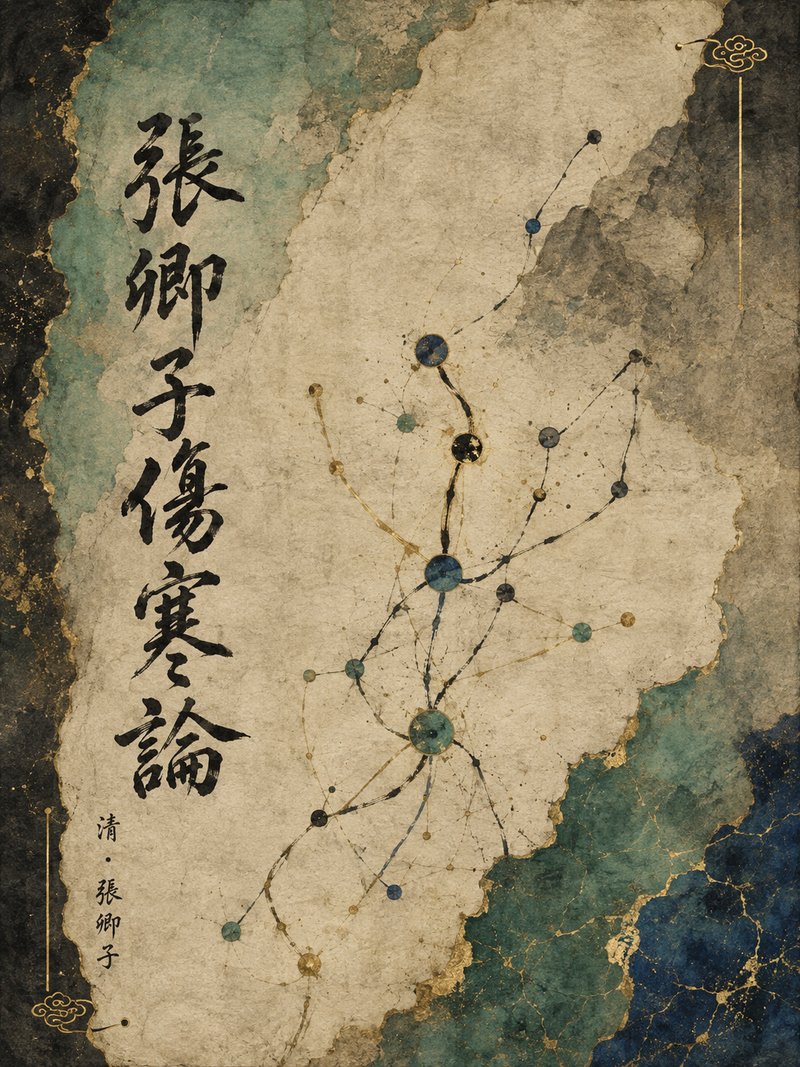 張卿子傷寒論
清・張卿子